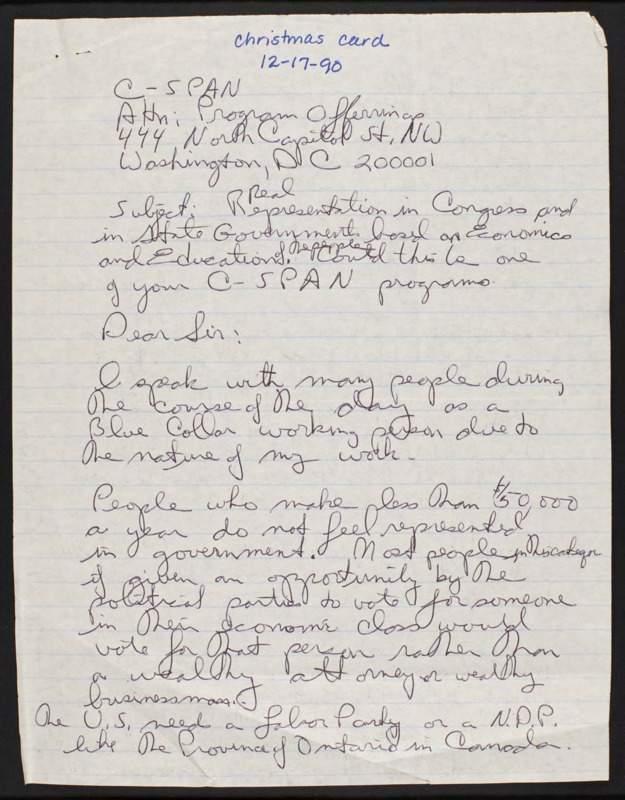 christmas card
12-17-90
C-SPAN
Attn: Program Offerrings
444 North Capitol St, NW
Washington, D C 200001
Subject: Real Representation in Congress and
in State Governments based on Economics
and Education of the people. Could this be one
of your C-SPAN programs.
Dear Sir:
I speak with many people during
the course of the day as a
Blue Collar working person due to
the nature of my work.
People who make less than $50,000
a year do not feel represented
in government. Most people in this category
if given an opportunity by the
political parties to vote for someone
in their economic class would
vote for that person rather than
a wealthy attorney or wealthy
businessman.
The U.S. need a Labor Party or a N.D.P.
like the Province of Ontario in Canada.